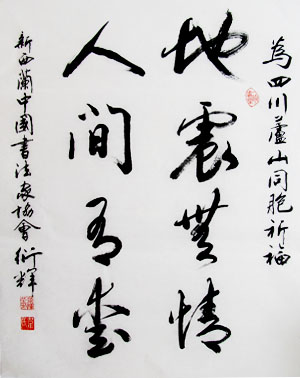 為四川蘆山同胞祈福
地震無情
人間有愛
新西蘭中國書法家協會衍輝